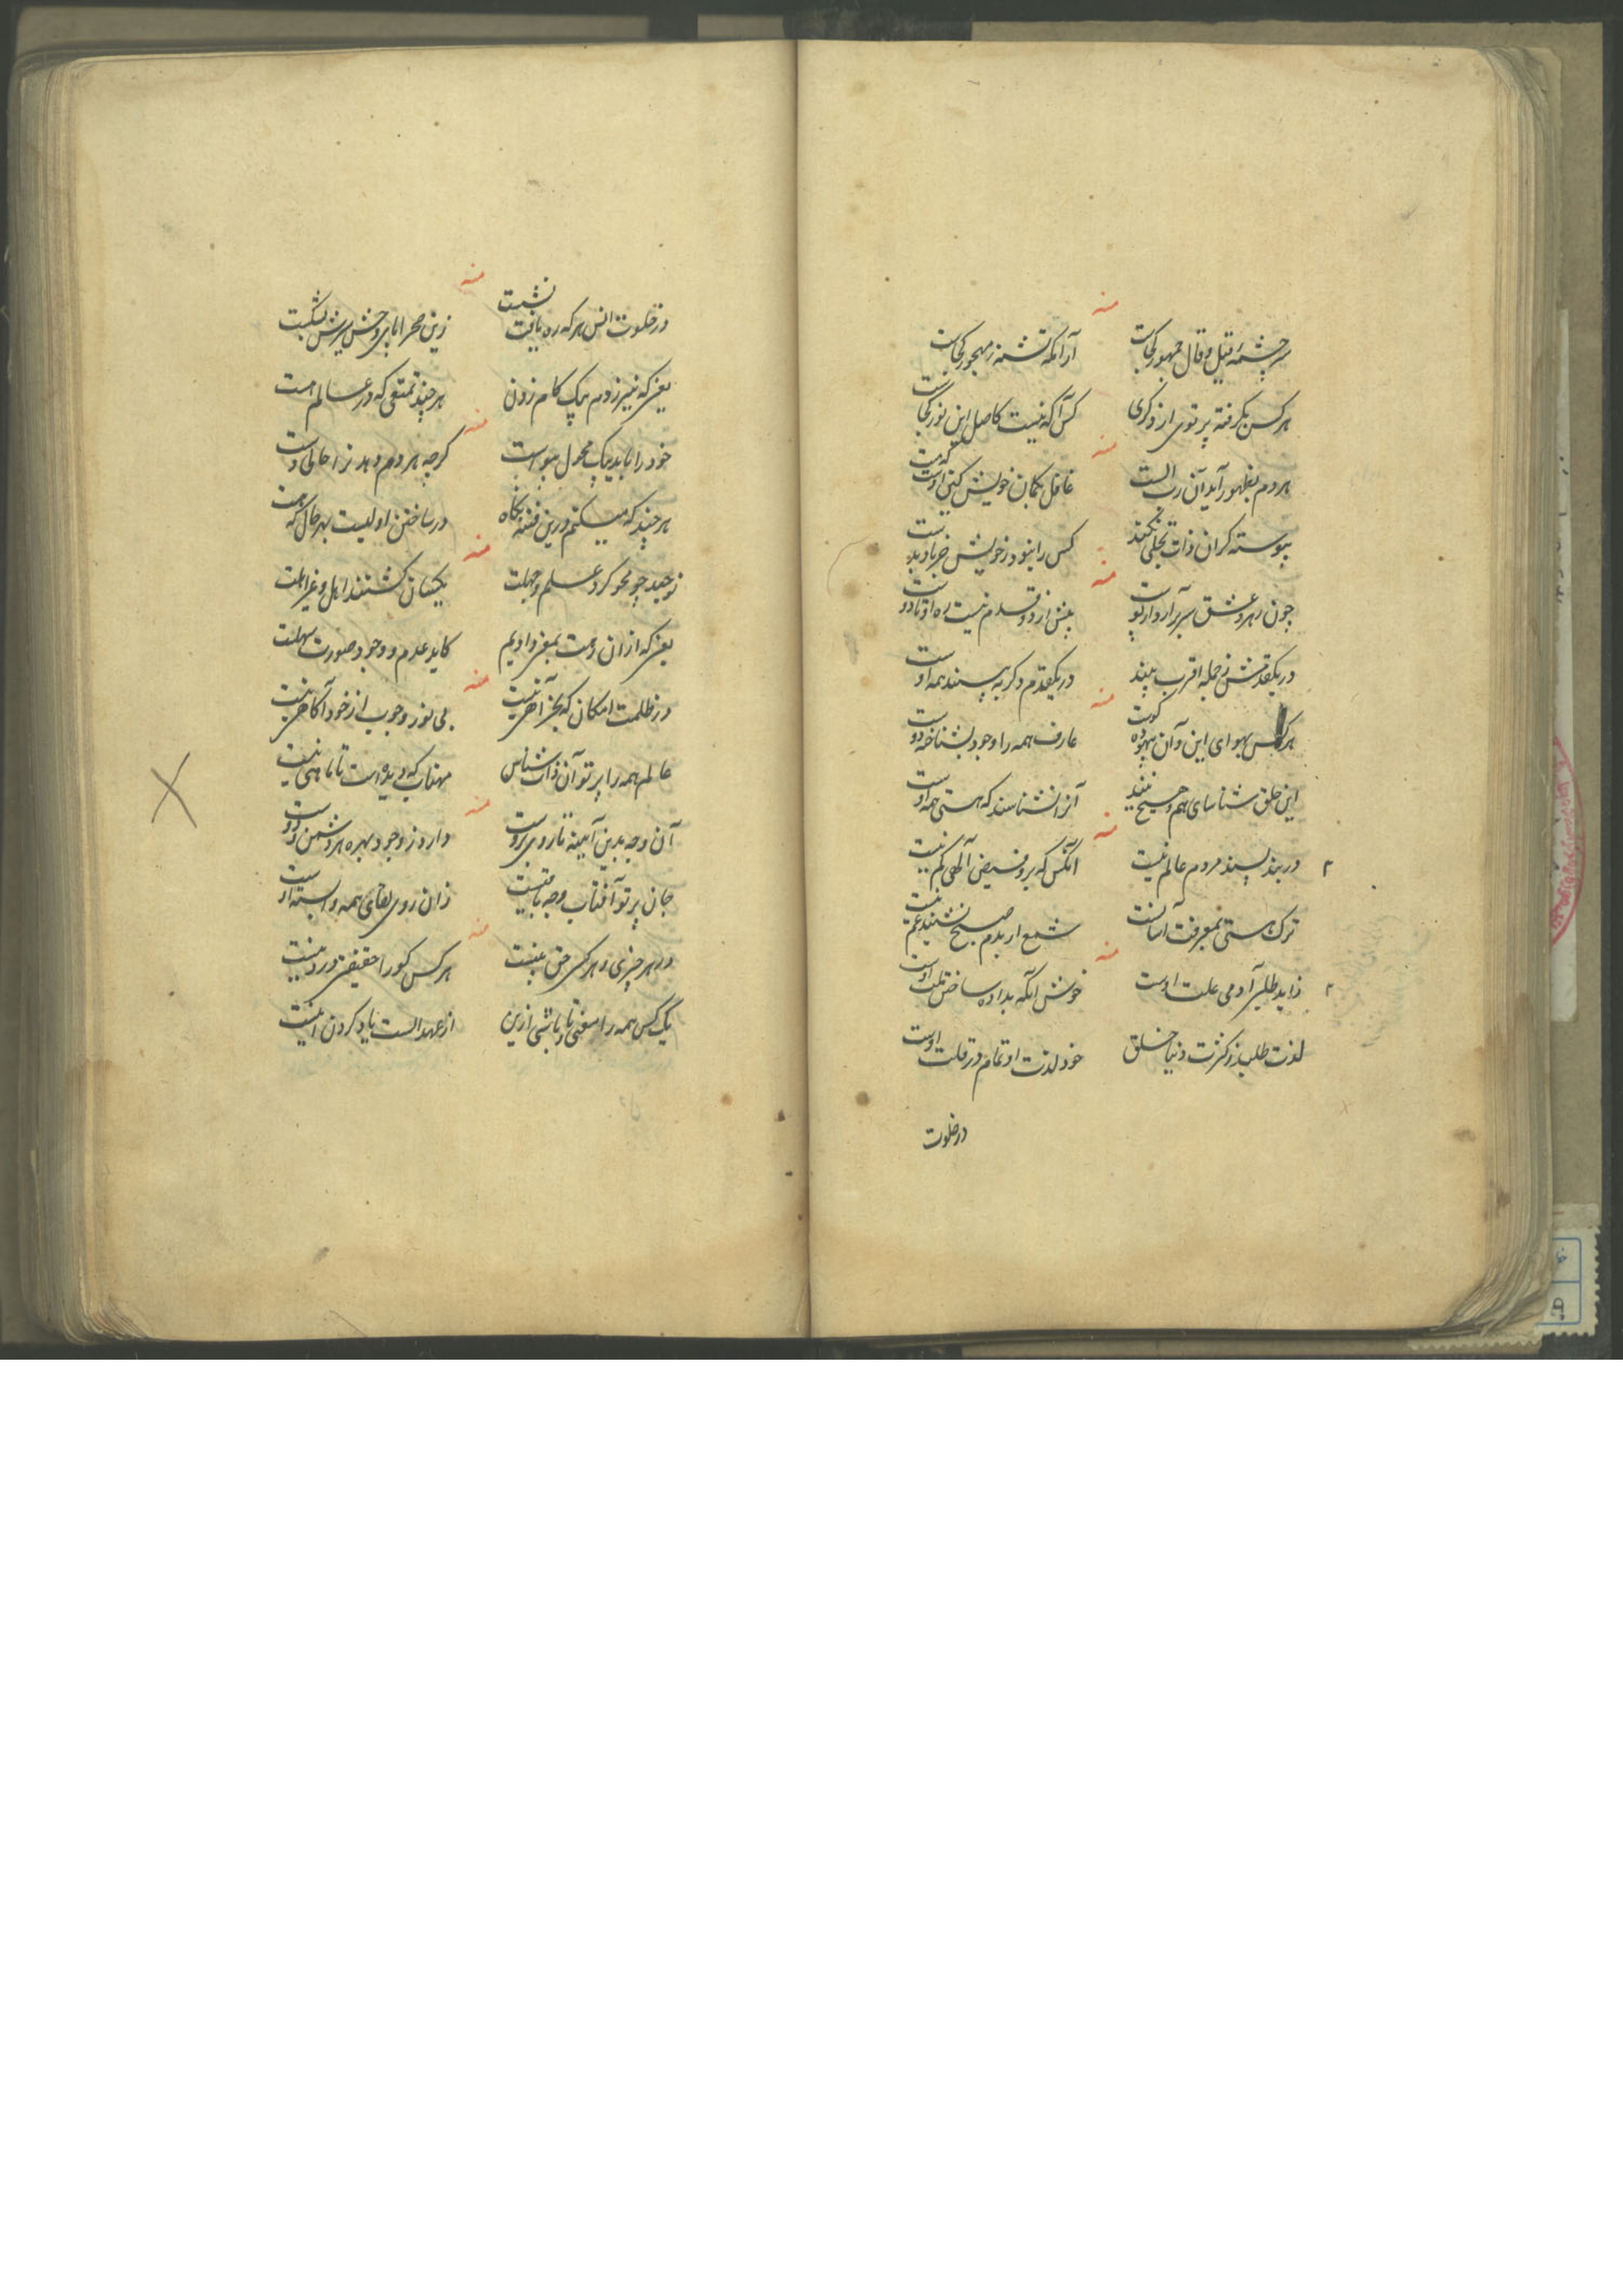 منه
سرچشمهٔ قیل و قال جمهور کجاست
آرامگه تشنه ز مهجور کجاست
هرکس بگرفته پرتوی از دگری
کس آگه نیست کاصل این نور کجاست
منه
هردم بظهور آید آن رب الست
غافل بگمان خویش کین اوست که هست
پیوسته کر آن ذات تجلی نکند
کس را نبود ز خویش خبر
منه
چون رهرو عشق سر برآرد از پوست
بیش از دو قدم نیست ره او تا دوست
در یکقدمش ز جمله اقرب بیند
در یکقدم دگر به بیند همه اوست
منه
هرکس بهوای این و آن بیهوده
عارف همه را وجود بشناخته دوست
این خلق شناسای هم و هیچ نیند
آنرا نشناسند که هستی همه اوست
منه
در بند پسند مردم عالم نیست
آنکس که برو فیض آلهی کم نیست
ترک هستی بمعرفت آسانست
شمع ار بدم صبح نشیند غم نیست
منه
زاید طلبی آدمی علت اوست
خوش آنکه بداده ساختن ملت اوست
لذت طلبد ز کثرت دنیا خلق
خود لذت او تمام در قلت اوست
در خلوت
منه
در خلوت انس هرکه ره یافت نشست
زین صحرا با پر وحش سرش شکست
یعنی که نیرزدم بیک کام زدن
هرچند تمتعی که در عالم هست
منه
خود را باید بیک محول پیوست
گرچه هردم دهد ترا حالی دست
هرچند که میکنم درین فتنه نگاه
در ساختن اولیست بهر حال که هست
منه
توحید چو محو کرد علم و جهلت
یکسان گشتند اهل و غیر اهلت
یعنی که از آن دست بمغز وادیم
کاید عدم و وجود صورت سهلت
منه
در ظلمت امکان که بجز آهی نیست
بی نور وجوب از خود آگاهی نیست
عالم همه را پرتو آن ذات شناس
مهتاب که دیده است تا ماهی نیست
منه
آن وجه بدین آیینه تا روی بروست
دارد ز وجود بهره هر دشمن و دوست
جان پرتو آفتاب وجه باقیست
زان روی بقای همه وابسته اوست
منه
در هر چیزی و هر کسی حق بینیست
هرکس کورا حقیقتی در دینیست
یک کس همه را مغنی و تا باشی ازین
از عهد الست یاد کردن اینیست